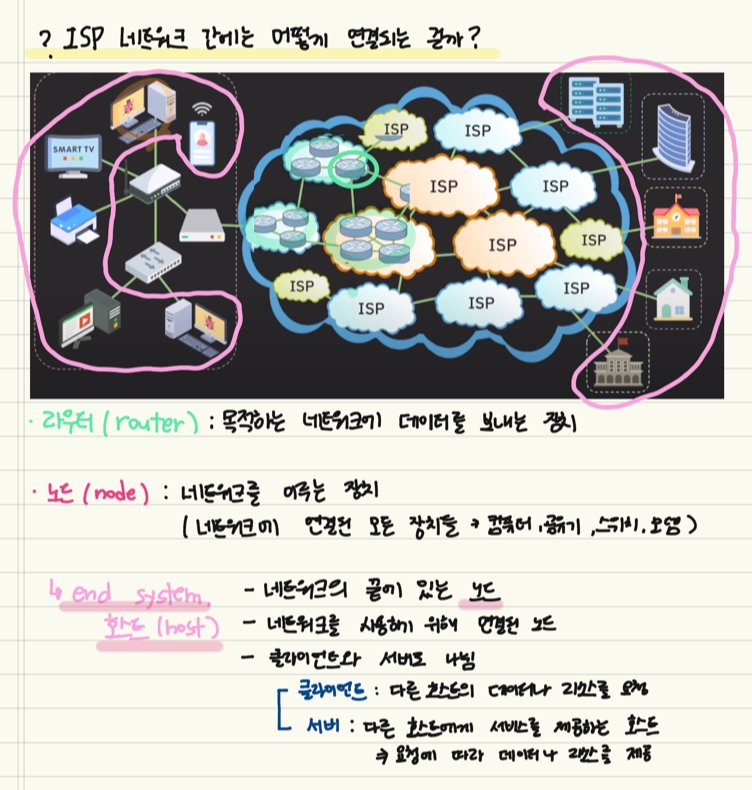 ? ISP 네트워크 간에는 어떻게 연결되는 걸까?
SMART TV
ISP
ISP
ISP
ISP
ISP
ISP
ISP
ISP
ISP
ISP
· 라우터 (router) : 목적하는 네트워크에 데이터를 보내는 장치
· 노드 (node) : 네트워크를 이루는 장치
(네트워크에 연결된 모든 장치들 → 컴퓨터, 공유기, 스위치, 모뎀)
↳ end system, - 네트워크의 끝에 있는 노드
호스트 (host) - 네트워크를 사용하기 위해 연결된 노드
- 클라이언트와 서버로 나뉨
클라이언트 : 다른 호스트의 데이터나 리소스를 요청
서버 : 다른 호스트에게 서비스를 제공하는 호스트
→ 요청에 따라 데이터나 리소스를 제공